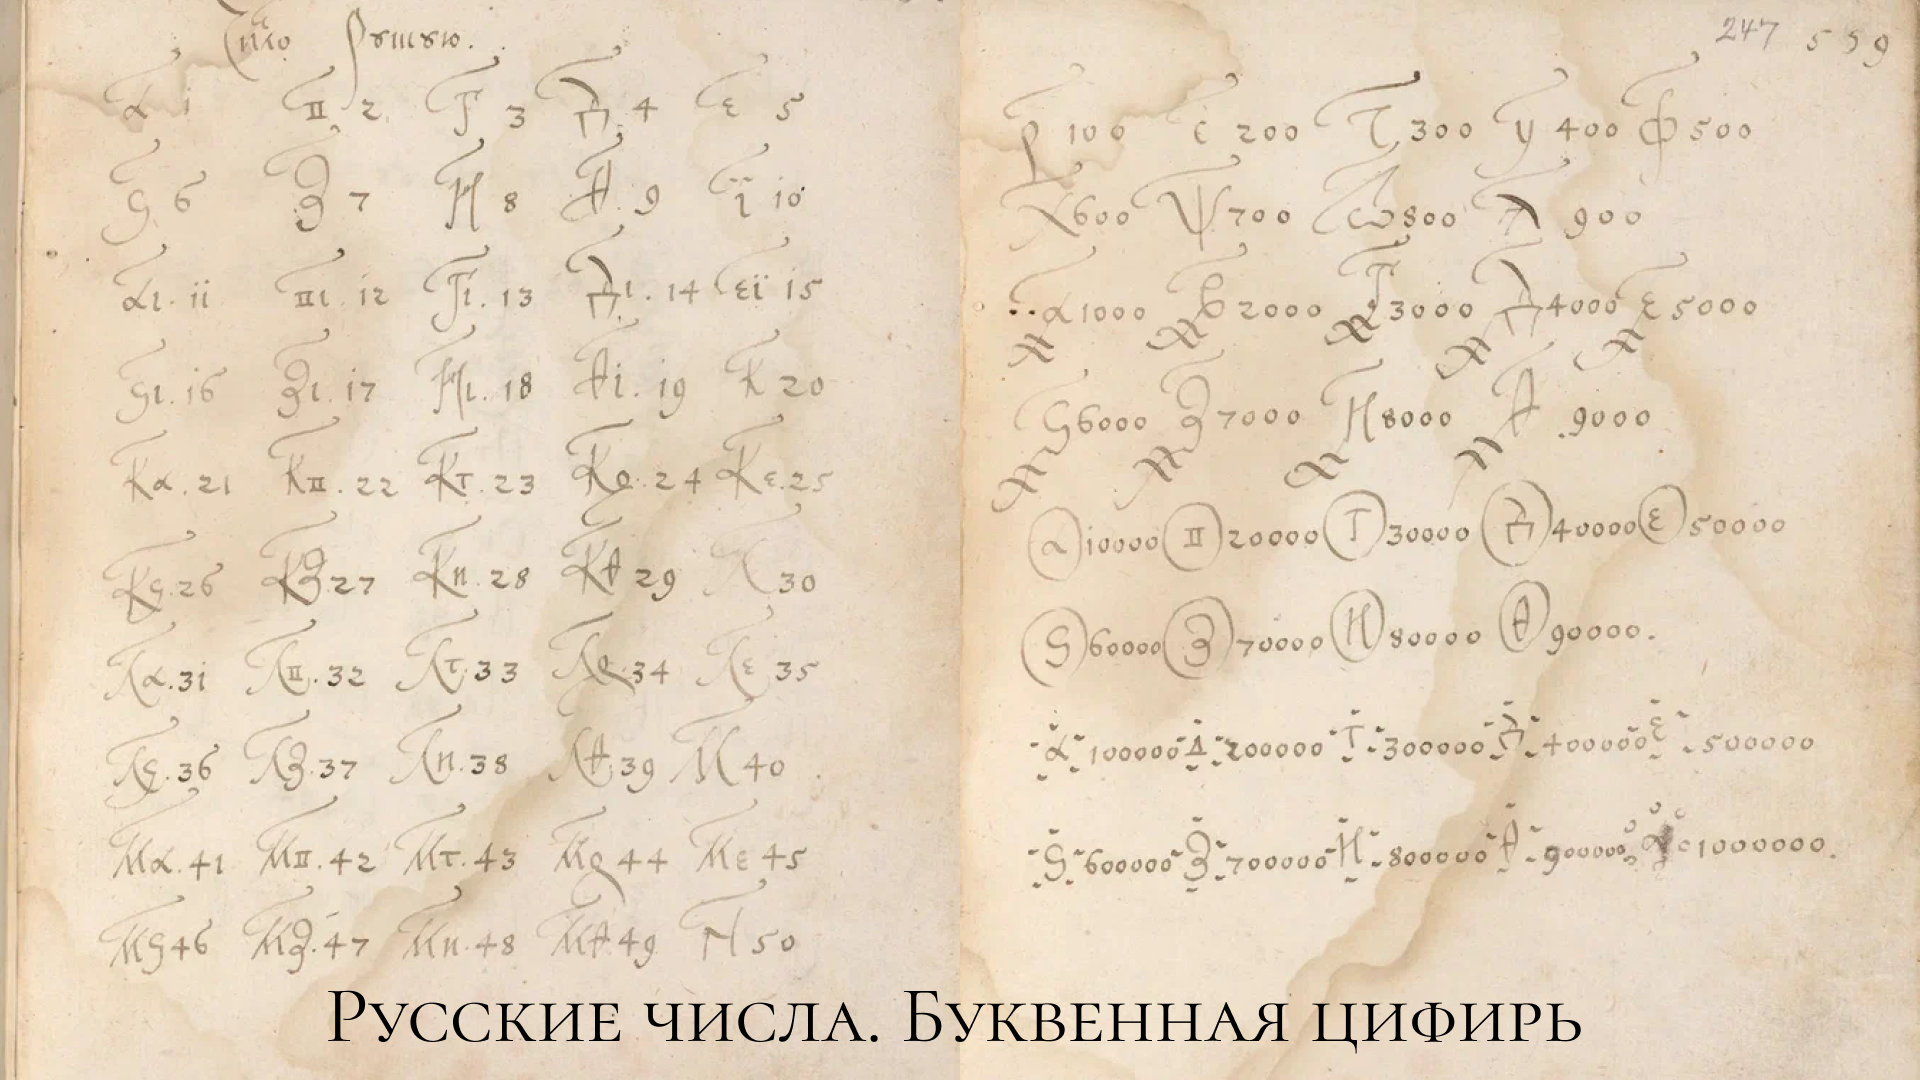 а 1 в 2 г 3 д 4 є 5
ѕ 6 з 7 и 8 ѳ 9 ї 10
аι. 11 вι. 12 гι. 13 дι. 14 єї 15
ѕι. 16 зι. 17 иι. 18 ѳι. 19 к 20
ка. 21 кв. 22 кг. 23 кд. 24 кє. 25
кѕ. 26 кз. 27 ки. 28 кѳ 29 л 30
ла. 31 лв. 32 лг. 33 лд. 34 лє 35
лѕ. 36 лз. 37 ли. 38 лѳ. 39 м 40
ма. 41 мв. 42 мг. 43 мд 44 мє 45
мѕ 46 мз. 47 ми. 48 мѳ 49 н 50
247 559
р 100 с 200 т 300 у 400 ф 500
х 600 ѱ 700 ѡ 800 900
а 1000 в 2000 г 3000 д 4000 є 5000
ѕ 6000 з 7000 и 8000 ѳ 9000
а 10000 в 20000 г 30000 д 40000 є 50000
ѕ 60000 з 70000 и 80000 ѳ 90000.
а 100000 200000 г 300000 д 400000 є 500000
ѕ 600000 з 700000 и 800000 ѳ 900000 а 1000000.
Русские числа. Буквенная цифирь